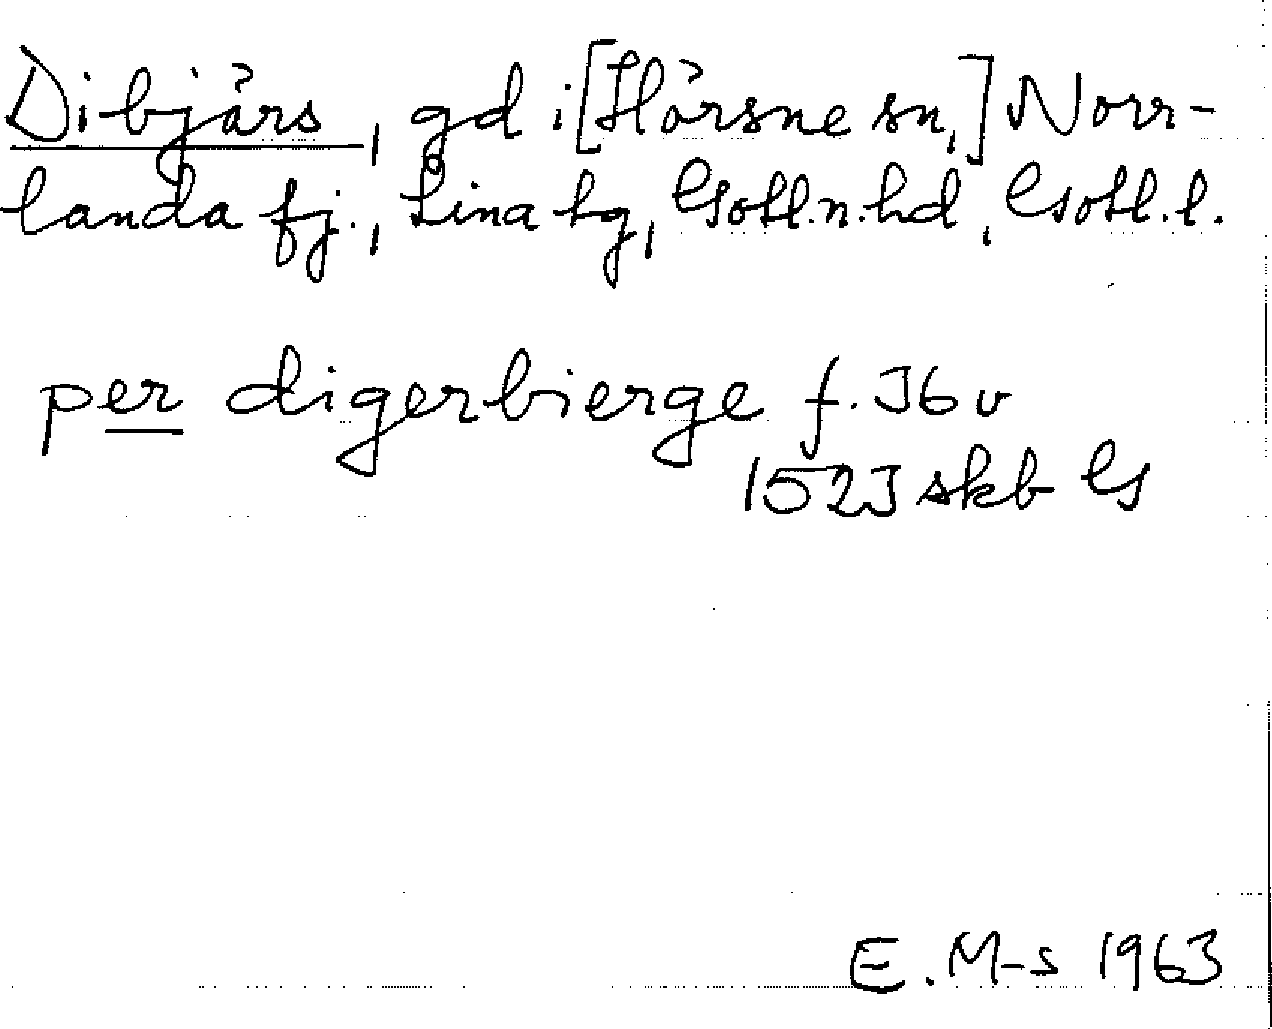 Dibjärs, gd i [Hörsne sn,] Norr-
landa fj., Lina tg, Gotl.n.hd, Gotl.l.
per digerbierge f. 36 v
1523 skb G
E. M-s 1963